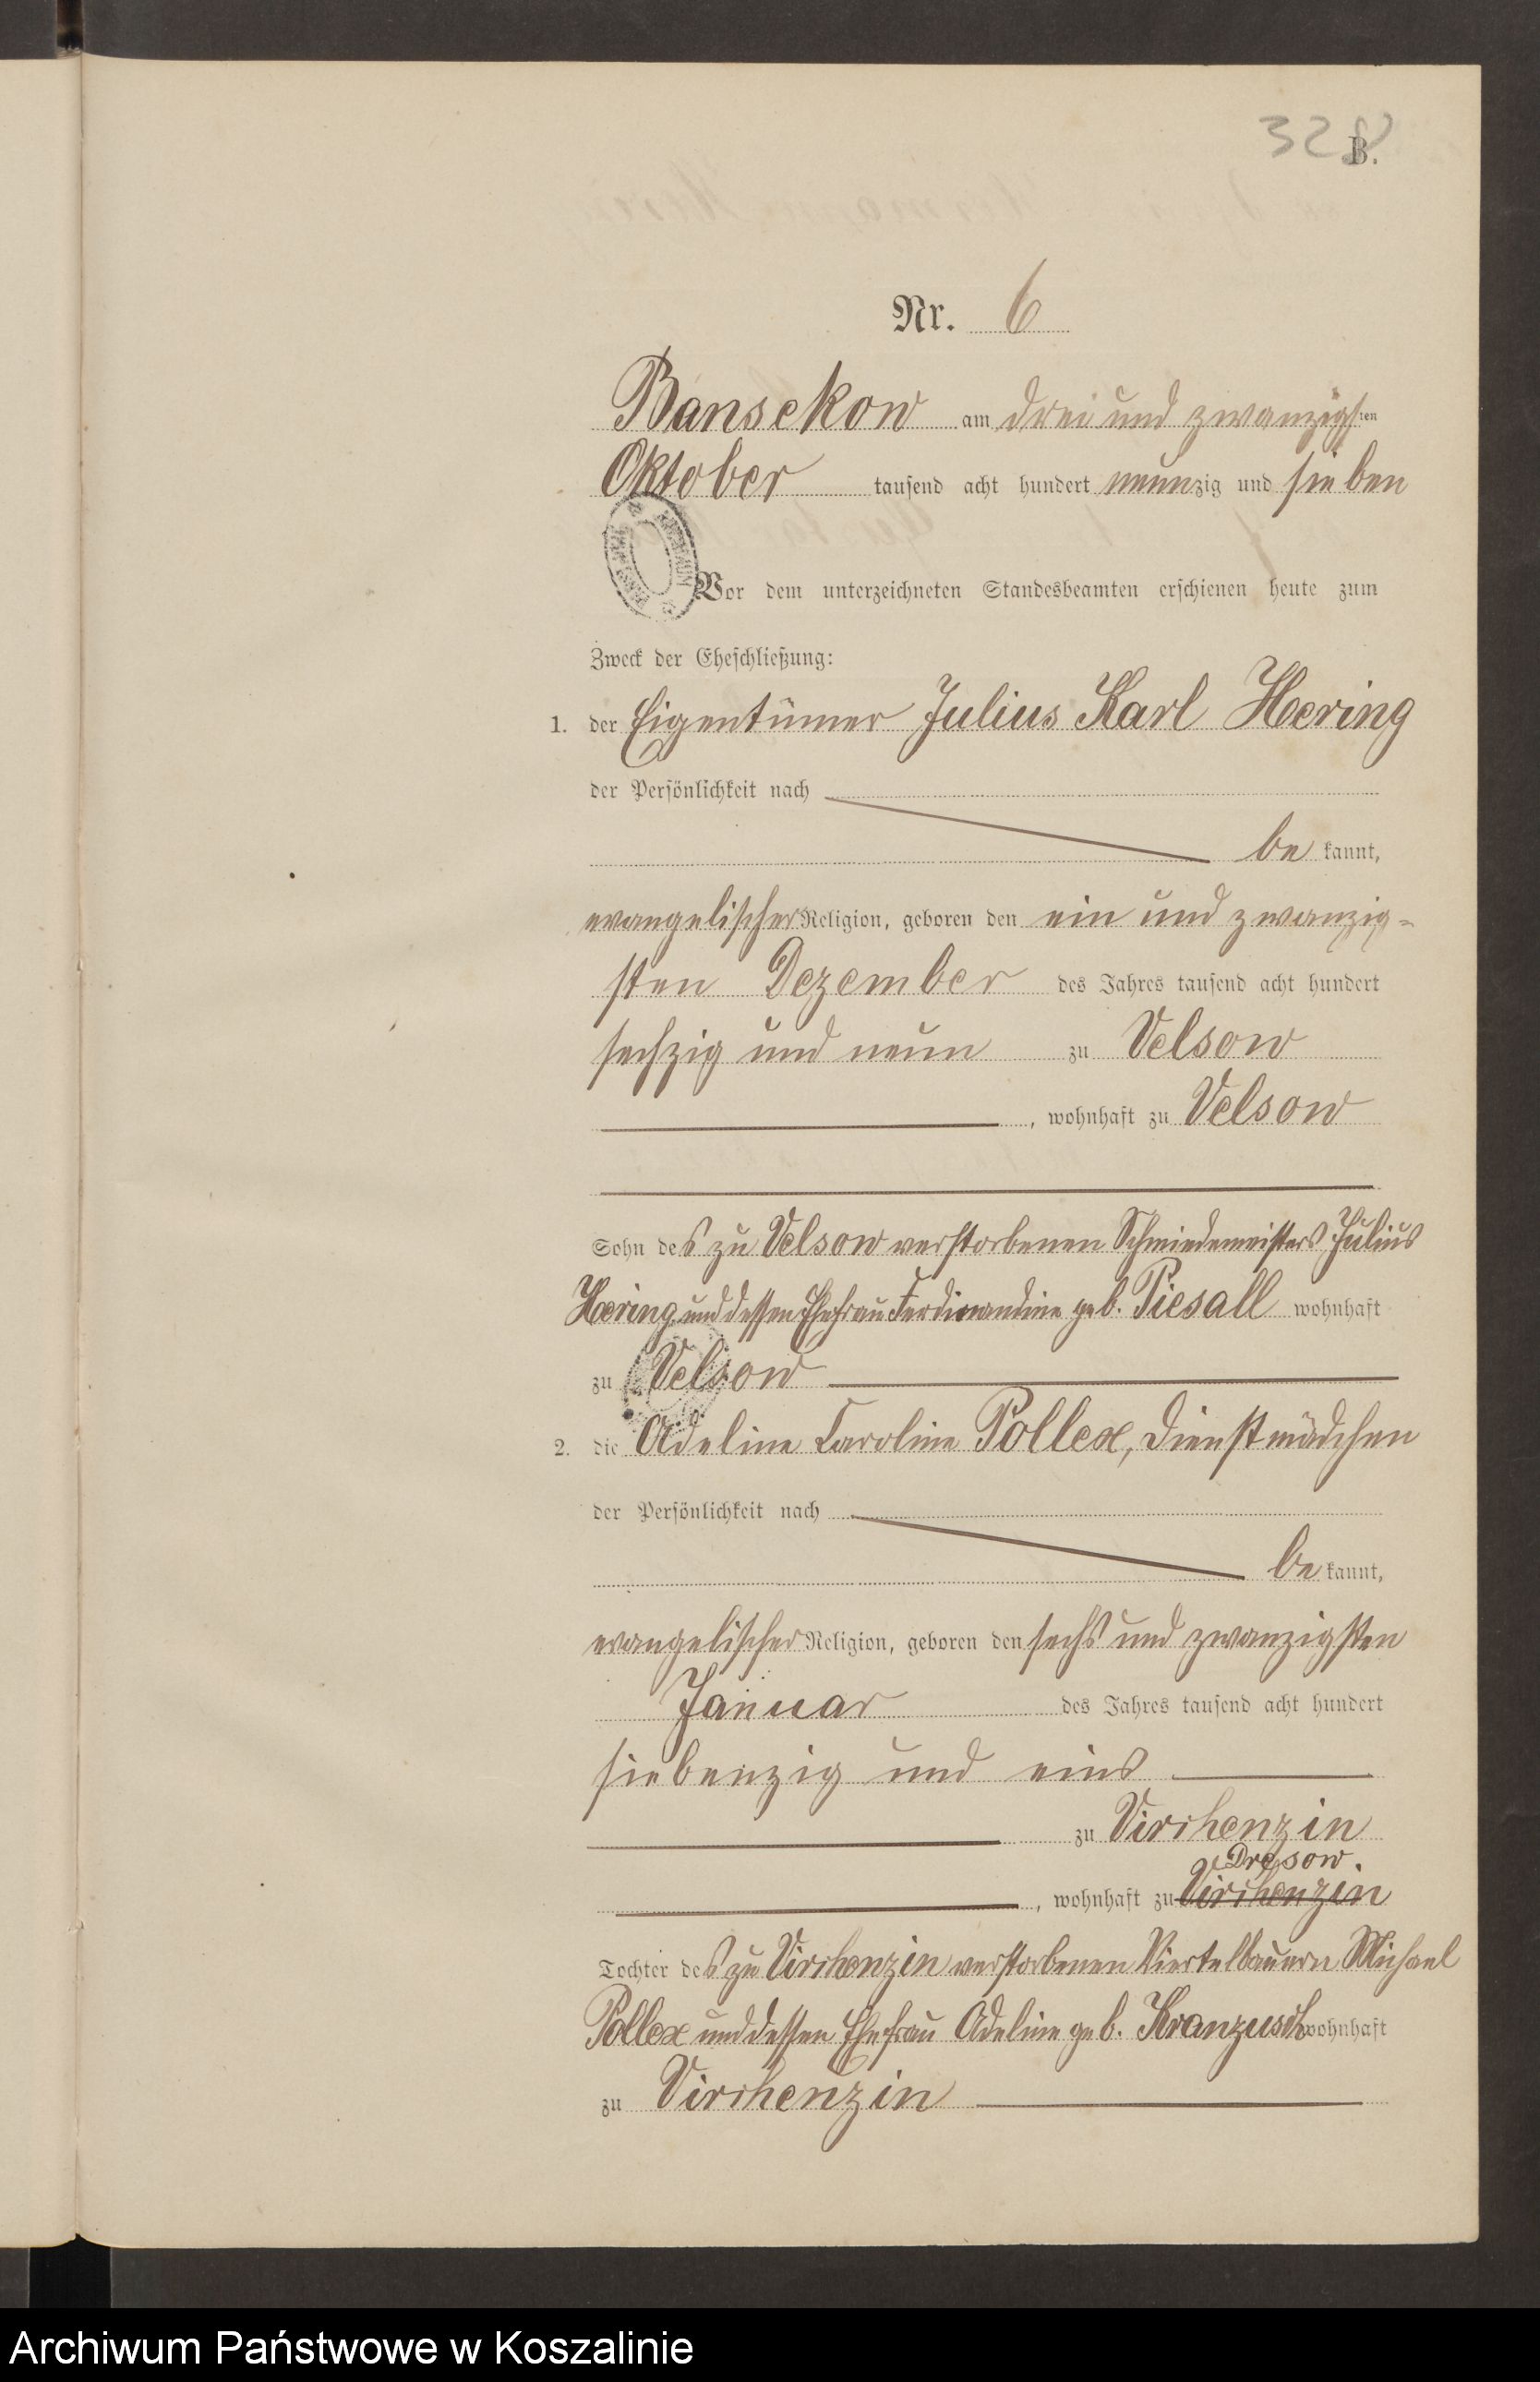 328
B.
Nr. 6
Bansekow am drei und zwanzigsten
Oktober tausend acht hundert neunzig und sieben
Vor dem unterzeichneten Standesbeamten erschienen heute zum
Zweck der Eheschließung:
1. der Eigentümer Julius Karl Hering
der Persönlichkeit nach
be kannt,
evangelischer Religion, geboren den ein und zwanzig-
sten Dezember des Jahres tausend acht hundert
sechzig und neun zu Velsow
, wohnhaft zu Velsow
Sohn des zu Velsow verstorbenen Schmiedemeisters Julius
Hering und dessen Ehefrau Ferdinandine geb. Piesall wohnhaft
zu Velsow
2. die Adeline Caroline Pollex, Dienstmädchen
der Persönlichkeit nach
be kannt,
evangelischer Religion, geboren den sechs und zwanzigsten
Januar des Jahres tausend acht hundert
siebenzig und eins
zu Virchenzin
Dresow.
, wohnhaft zu Virchenzin
Tochter des zu Virchenzin verstorbenen Viertelbauern Michael
Pollex und dessen Ehefrau Adeline geb. Kranzusch wohnhaft
zu Virchenzin
Archiwum Państwowe w Koszalinie